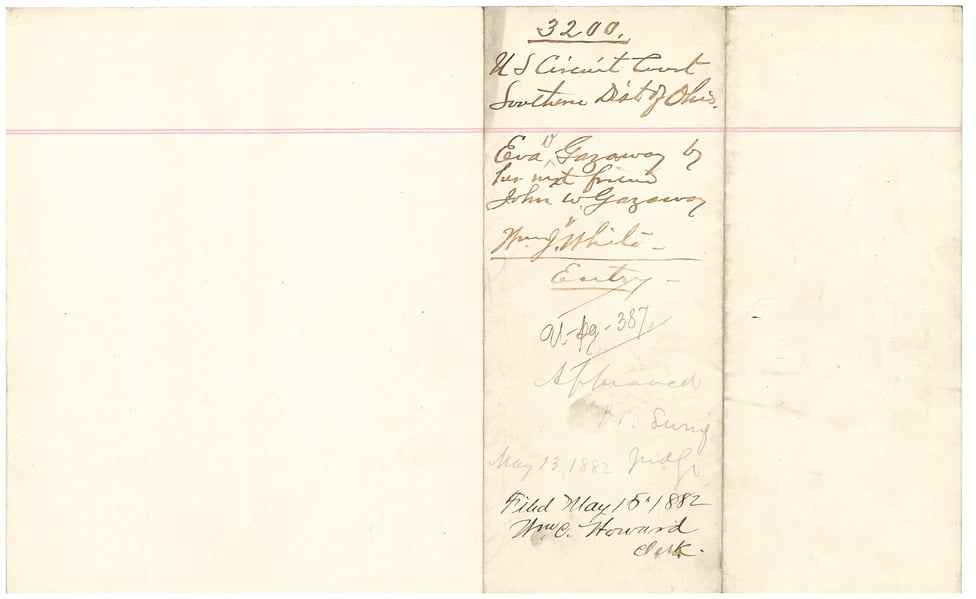 3200.
U S Circuit Court
Southern Dist of Ohio.
Eva Gazaway by
her next friend
John W. Gazaway
v
Wm J. White -
Entry -
pg - 387
Approved
Swing
May 13, 1882 Judge
Filed May 15" 1882
Wm C. Howard
Clerk.